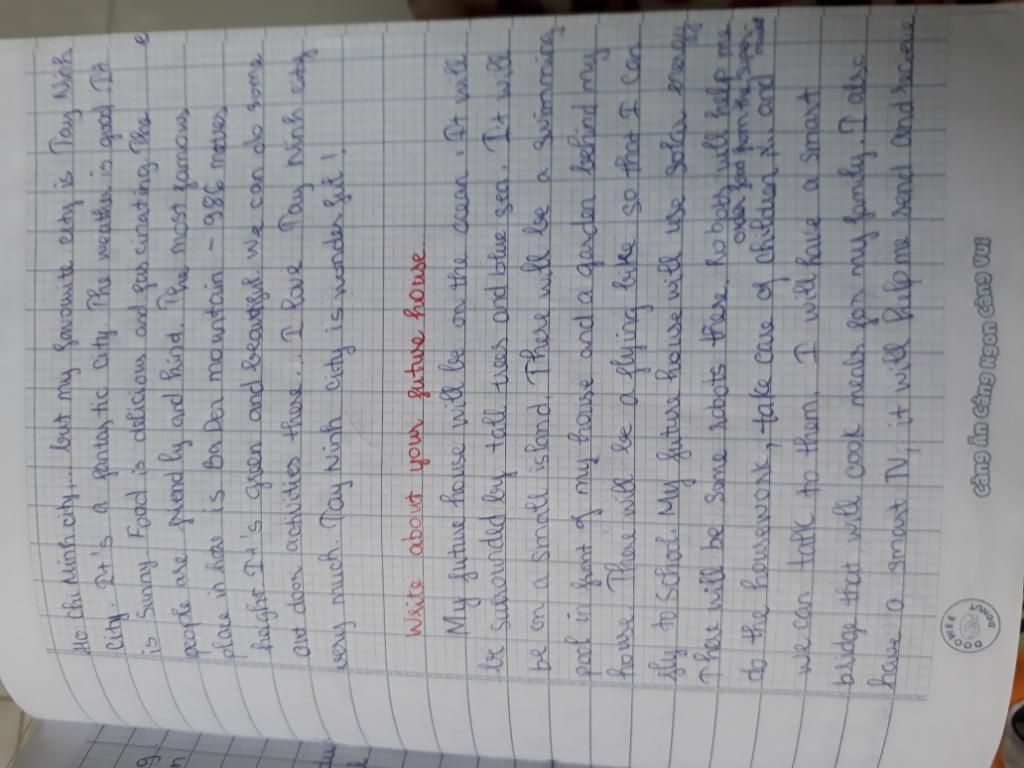 Ho Chi Minh city,... but my favourite city is Tay Ninh
city. It's a fantastic city. The weather is good. It
is sunny. Food is delicious and fascinating. The
people are friendly and kind. The most famous
place in here is Ba Den mountain - 986 metres
height. It's green and beautiful. We can do some
out door activities there... I love Tay Ninh city
very much. Tay Ninh city is wonderful!
Write about your future house
My future house will be on the ocean. It will
be surrounded by tall trees and blue sea. It will
be on a small island. There will be a swimming
pool in front of my house and a garden behind my
house. There will be a flying bike so that I can
fly to school. My future house will use solar energy
There will be some robots there. Robots will help me
do the housework, take care of children and
order food from the super
market
we can talk to them. I will have a smart
bridge that will cook meals for my family. I also
have a smart TV, it will help me send and receive
cùng ăn cùng ngon cùng vui